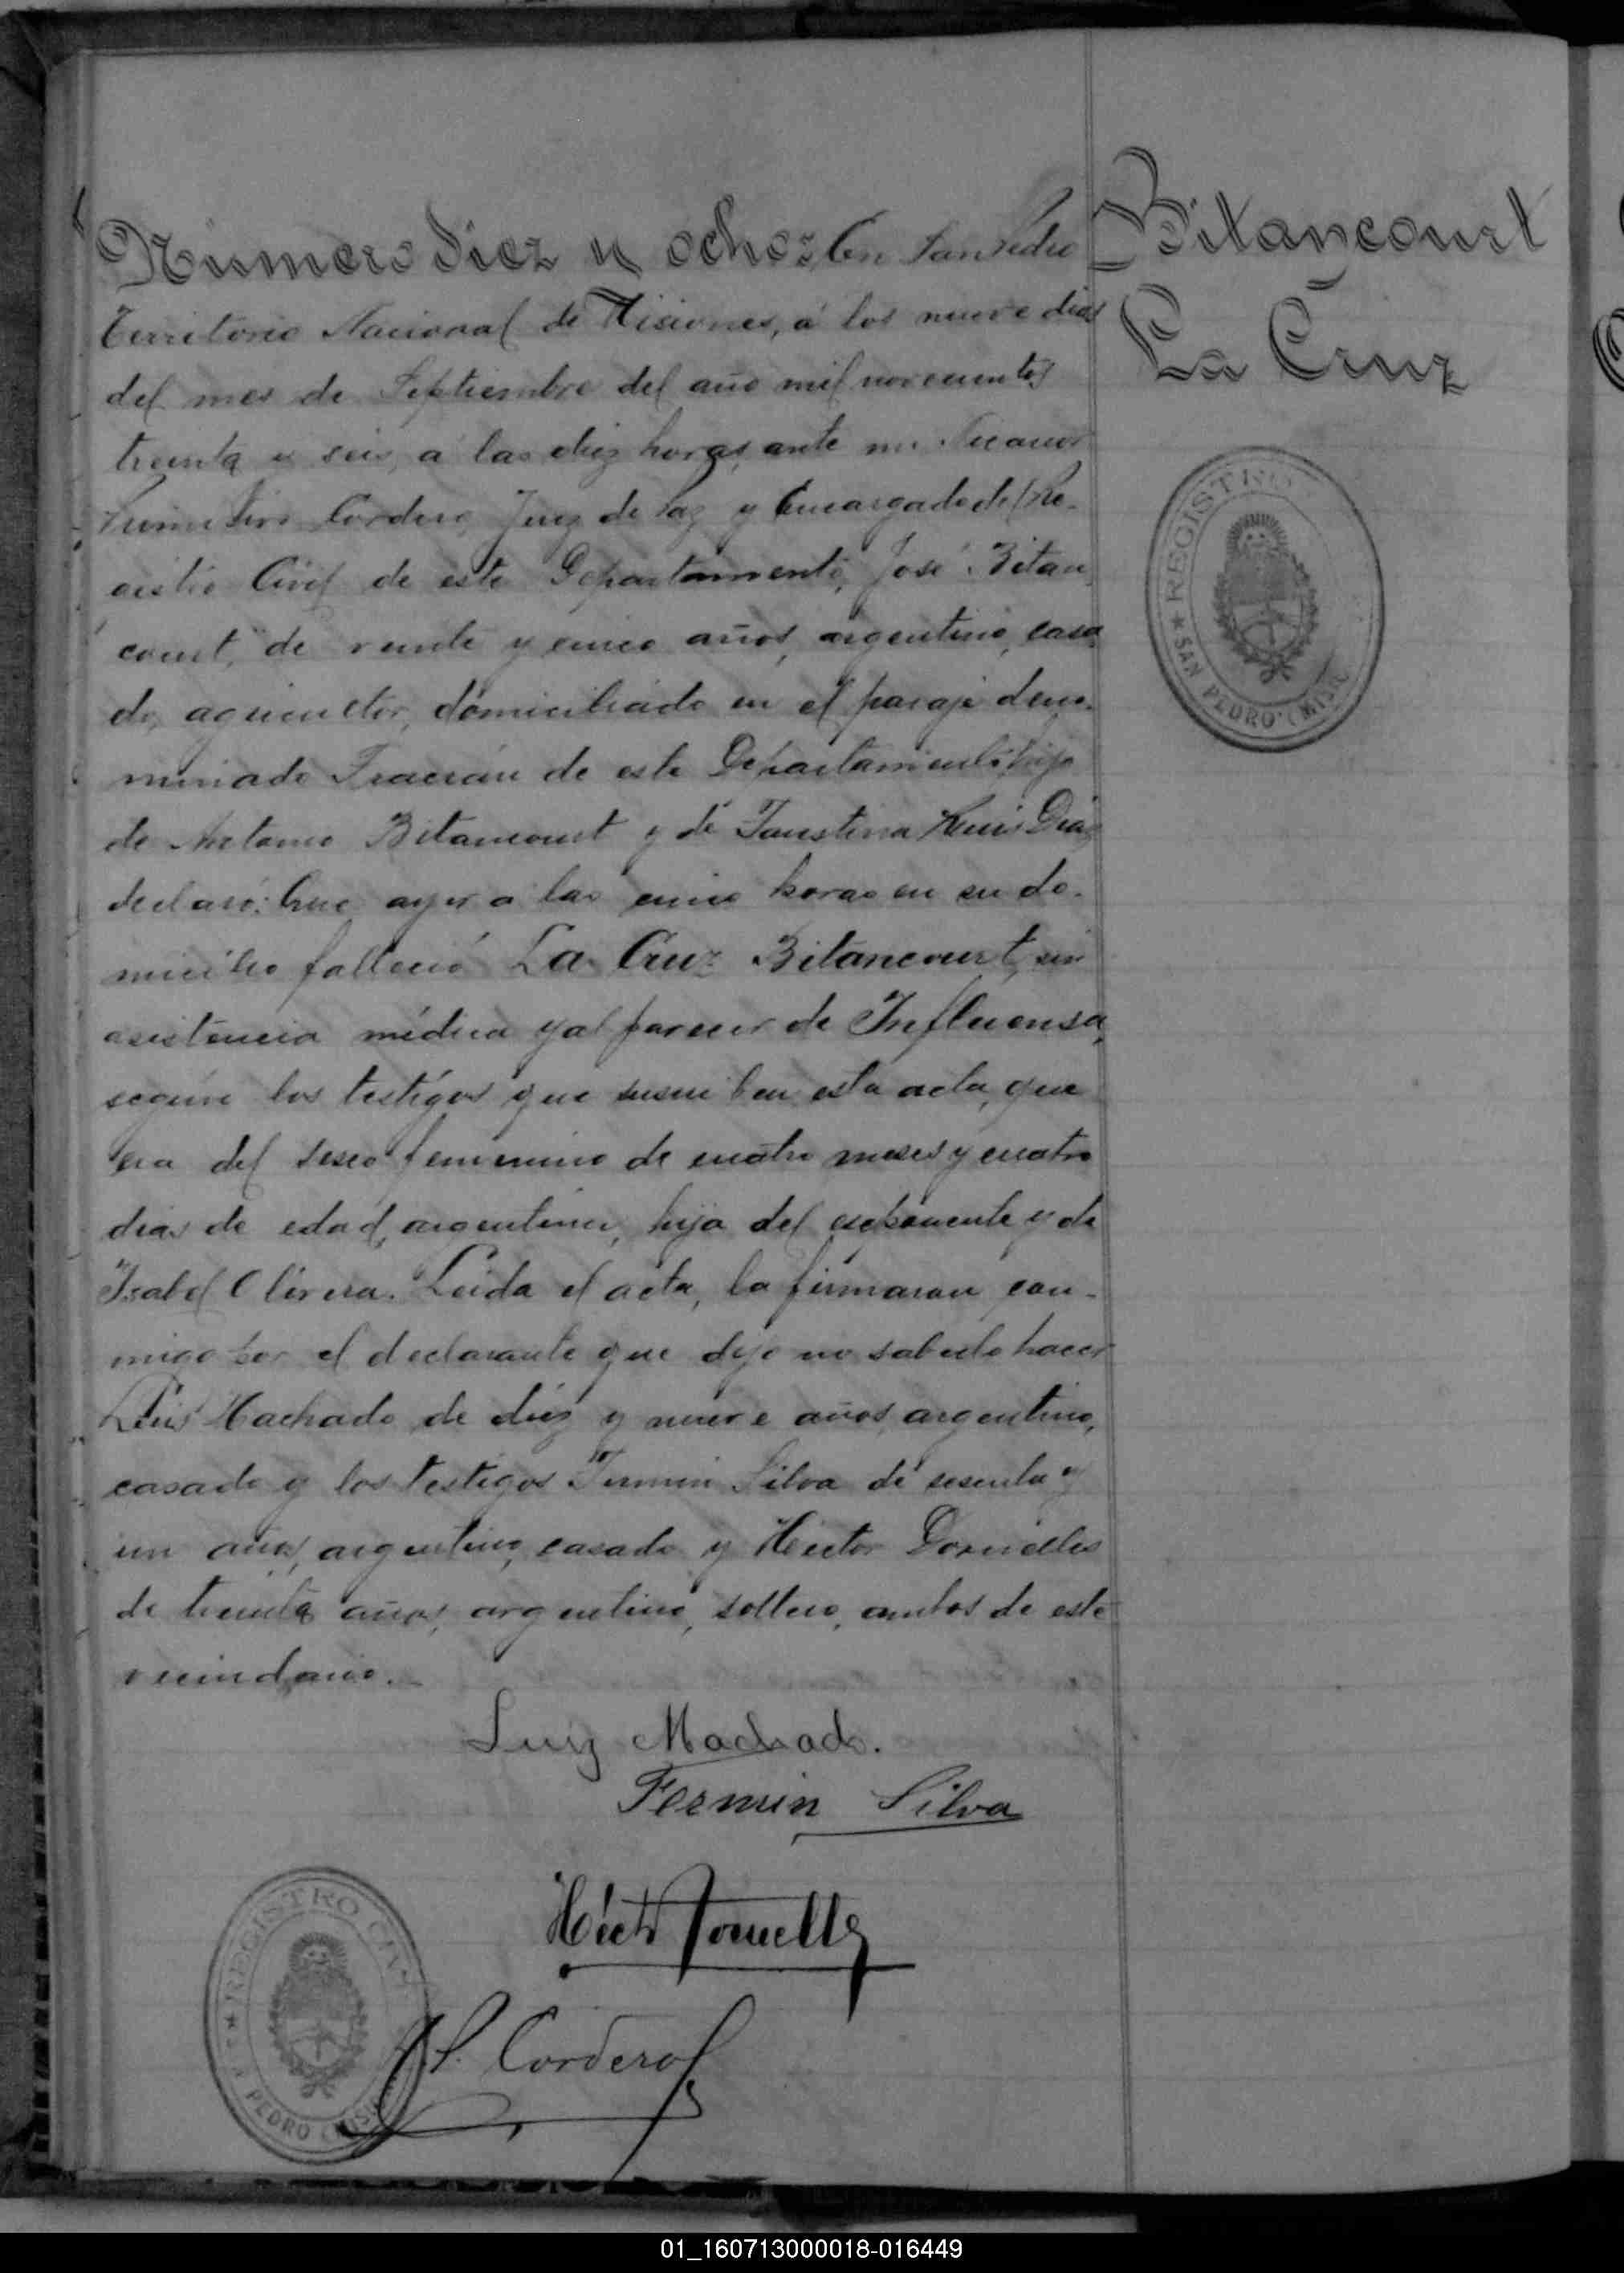 Número diez y ocho: En San Pedro
Territorio Nacional de Misiones, á los nueve dias
del mes de Septiembre del año mil novecientos
treinta y seis, a las diez horas, ante mi Nicanor
Cordero, Juez de Paz y Encargado del Re-
gistro Civil de este Departamento, José Bitan
court, de veinte y cinco años, argentino, casa
do, agricultor, domiciliado en el paraje deno-
minado Fracrán de este Departamento, hijo
de Antonio Bitancourt y de Faustina
declaró: Que ayer a las cinco horas en su do-
micilio falleció La Cruz Bitancourt, sin
asistencia médica y al parecer de Influensa,
según los testigos que suscriben esta acta, que
era del sexo femenino de cuatro meses y cuatro
dias de edad, argentina, hija del exponente y de
Isabel Olivera. Leida el acta, la firmaron con-
migo por el declarante que dijo no saberlo hacer
Luis Machado de diez y nueve años, argentino,
casado y los testigos Fermin Silva de sesenta y
un años, argentino, casado y Héctor Dornelles
de treinta años, argentino, soltero, ambos de este
vecindario.
Luiz Machado.
Fermin Silva
Héctor Dornelles
Cordero
Bitancourt
La Cruz
REGISTRO
★ SAN PEDRO (MIS
REGISTRO CIV
PEDRO (MIS
01_160713000018-016449